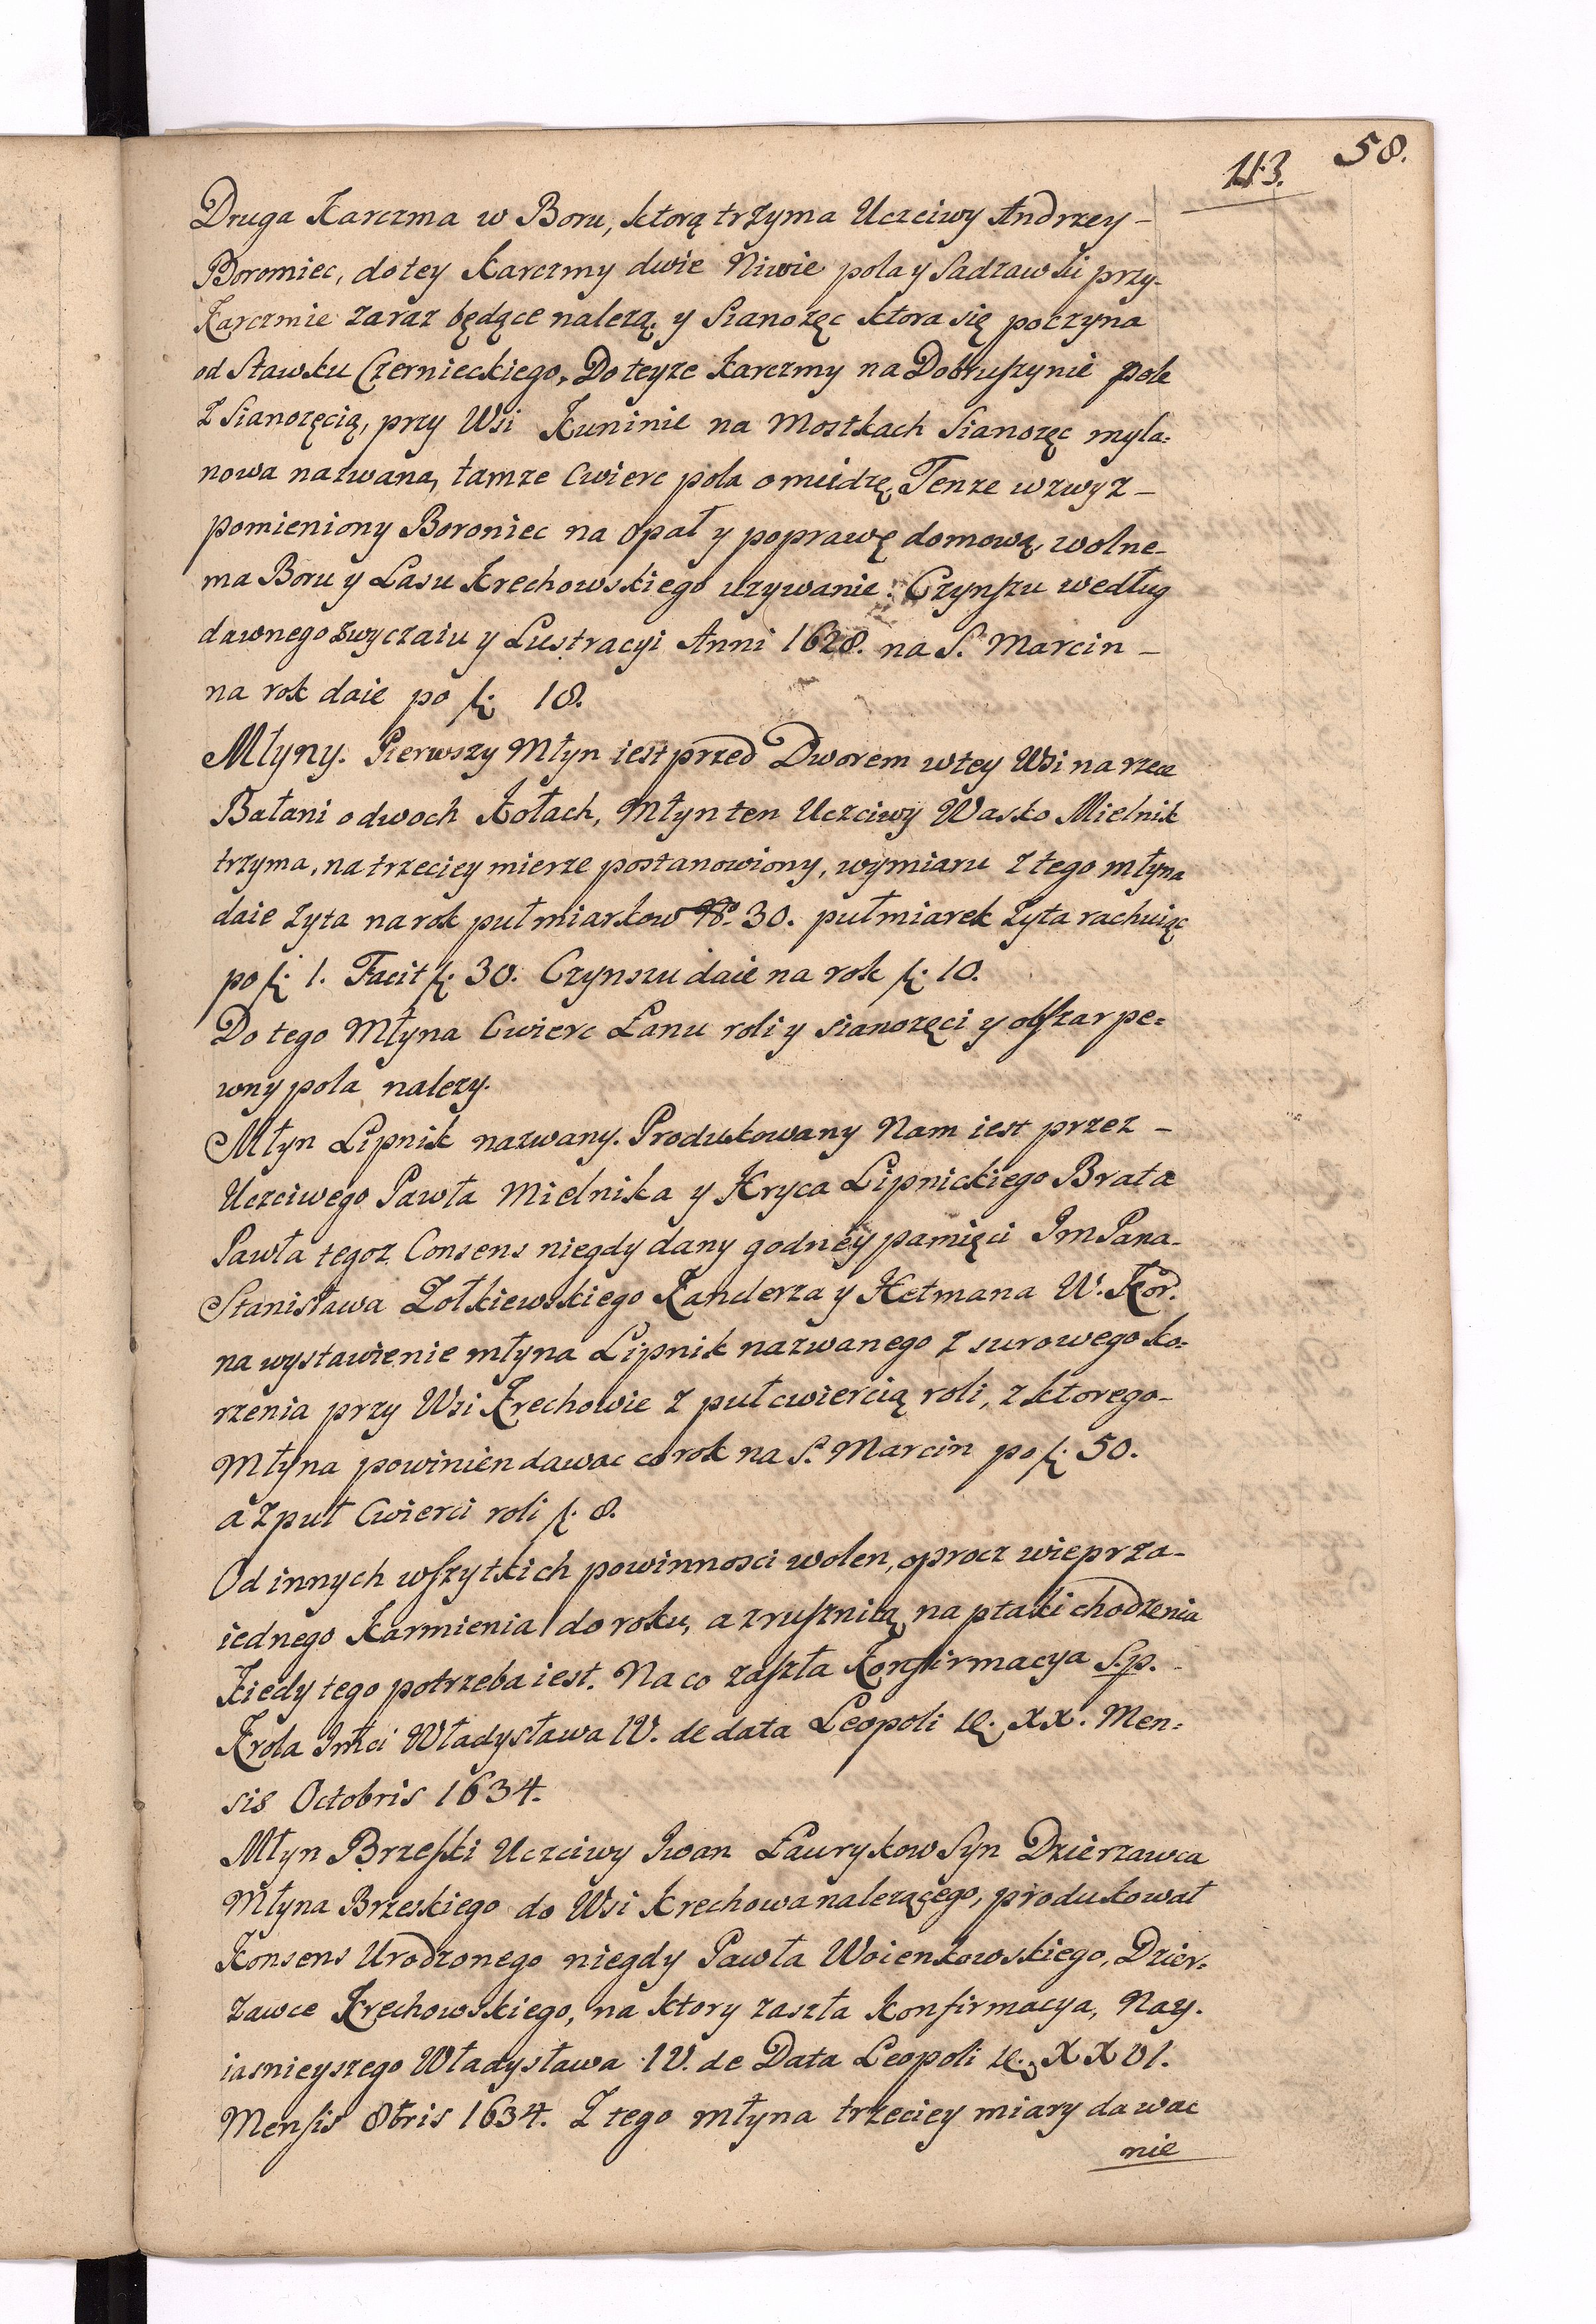 113. 58.
Druga Karczma w Boru, ktorą trzyma Uczciwy Andrzey -
Boromiec, do tey Karczmy dwie Niwie pola y Sadzawki przy-
Karczmie zaraz będące nalezą. y Sianozęc ktora się poczyna
od Stawku Czernieckiego, Do teyze Karczmy na Dobruszynie pole
z Sianozęcią, przy Wsi Kuninie na Mostkach Sianozęc myla=
nowa nazwana, tamze Cwierc pola o miedzę, Tenze wzwyz -
pomieniony Boroniec na opał y poprawę domową, wolne-
ma Boru y Lasu Krechowskiego uzywanie. Czynszu według
dawnego zwyczaiu y Lustracyi Anni 1628. na S. Marcin -
na rok daie po fl: 18.
Młyny. Pierwszy Młyn iest przed Dworem w tey Wsi na rzece
Bałani o dwoch Kołach, Młyn ten Uczciwy Wasko Mielnik
trzyma, na trzeciey mierze postanowiony, wymiaru z tego młyna
daie zyta na rok pułmiarkow No. 30. pułmiarek zyta rachuiąc
po fl: 1. Facit fl: 30. Czynszu daie na rok fl: 10.
Do tego Młyna Cwierc Łanu roli y sianozęci y obszar pe=
wny pola nalezy.
Młyn Lipnik nazwany. Produkowany Nam iest przez -
Uczciwego Pawła Mielnika y Hryca Lipnickiego Brata
Pawła tegoz Consens niegdy dany godney pamięci Jm Pana-
Stanisława Zołkiewskiego Kanclerza y Hetmana W. Kor.
na wystawienie młyna Lipnik nazwanego z surowego ko=
rzenia przy Wsi Krechowie z puł cwiercią roli, z ktorego-
Młyna powinien dawac co rok na S. Marcin po fl: 50.
a z puł Cwierci roli fl: 8.
Od innych wszytkich powinnosci wolen, oprocz wieprza-
iednego Karmienia do roku, a z rusznicą na ptaki chodzenia
Kiedy tego potrzeba iest. Na co zaszła Konfirmacya S.p. -
Krola Jmci Władysława IV. de data Leopoli d. XX. Men=
sis Octobris 1634.
Młyn Brzeski Uczciwy Iwan Ławrykow Syn Dzierzawca
Młyna Brzeskiego do Wsi Krechowa nalezącego, produkował
Konsens Urodzonego niegdy Pawła Woienkowskiego, Dzier=
zawce Krechowskiego, na ktory zaszła Konfirmacya, Nay-
iasnieyszego Władysława IV. de Data Leopoli d. XXVI.
Mensis 8bris 1634. Z tego młyna trzeciey miary dawac
nie